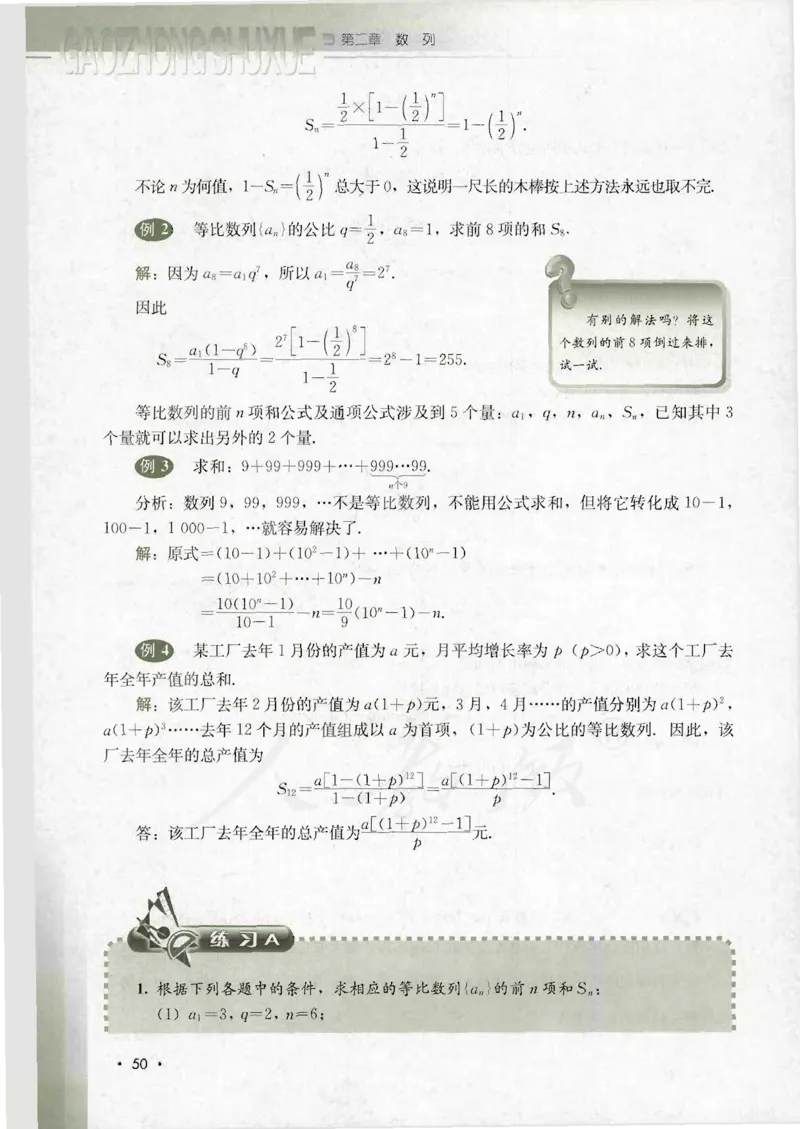 GAOZHONGSHUXUE 第二章 数 列
Sₙ=\frac{\frac{1}{2}×[1-(\frac{1}{2})ⁿ]}{1-\frac{1}{2}}=1-(\frac{1}{2})ⁿ.
不论 n 为何值，1-Sₙ=(\frac{1}{2})ⁿ 总大于 0，这说明一尺长的木棒按上述方法永远也取不完.
例 2 等比数列{aₙ}的公比 q=\frac{1}{2}，a₈=1，求前 8 项的和 S₈.
解：因为 a₈=a₁q⁷，所以 a₁=\frac{a₈}{q⁷}=2⁷.
因此
S₈=\frac{a₁(1-q⁸)}{1-q}=\frac{2⁷[1-(\frac{1}{2})⁸]}{1-\frac{1}{2}}=2⁸-1=255.
有别的解法吗？将这
个数列的前 8 项倒过来排，
试一试.
等比数列的前 n 项和公式及通项公式涉及到 5 个量：a₁，q，n，aₙ，Sₙ，已知其中 3
个量就可以求出另外的 2 个量.
例 3 求和：9+99+999+…+999…99.
n个9
分析：数列 9，99，999，…不是等比数列，不能用公式求和，但将它转化成 10-1，
100-1，1 000-1，…就容易解决了.
解：原式=(10-1)+(10²-1)+ …+(10ⁿ-1)
=(10+10²+…+10ⁿ)-n
=\frac{10(10ⁿ-1)}{10-1}-n=\frac{10}{9}(10ⁿ-1)-n.
例 4 某工厂去年 1 月份的产值为 a 元，月平均增长率为 p（p>0），求这个工厂去
年全年产值的总和.
解：该工厂去年 2 月份的产值为 a(1+p)元，3 月，4 月……的产值分别为 a(1+p)²，
a(1+p)³……去年 12 个月的产值组成以 a 为首项，(1+p)为公比的等比数列. 因此，该
厂去年全年的总产值为
S₁₂=\frac{a[1-(1+p)¹²]}{1-(1+p)}=\frac{a[(1+p)¹²-1]}{p}.
答：该工厂去年全年的总产值为\frac{a[(1+p)¹²-1]}{p}元.
练 习 A
1. 根据下列各题中的条件，求相应的等比数列{aₙ}的前 n 项和 Sₙ：
(1) a₁=3，q=2，n=6；
· 50 ·